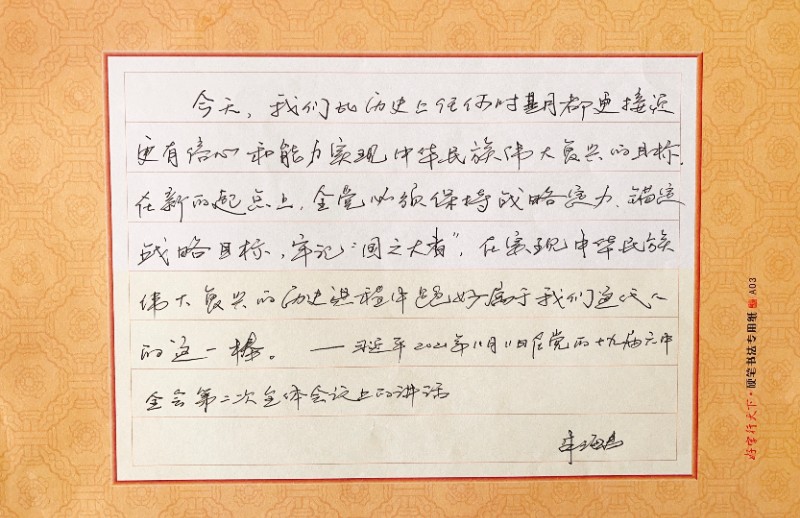 今天，我们比历史上任何时期都更接近
更有信心和能力实现中华民族伟大复兴的目标。
在新的起点上，全党必须保持战略定力、锚定
战略目标，牢记“国之大者”，在实现中华民族
伟大复兴的历史进程中跑好属于我们这代人
的这一棒。——习近平2021年11月11日在党的十九届六中
全会第二次全体会议上的讲话
好字行天下·硬笔书法专用纸 A03